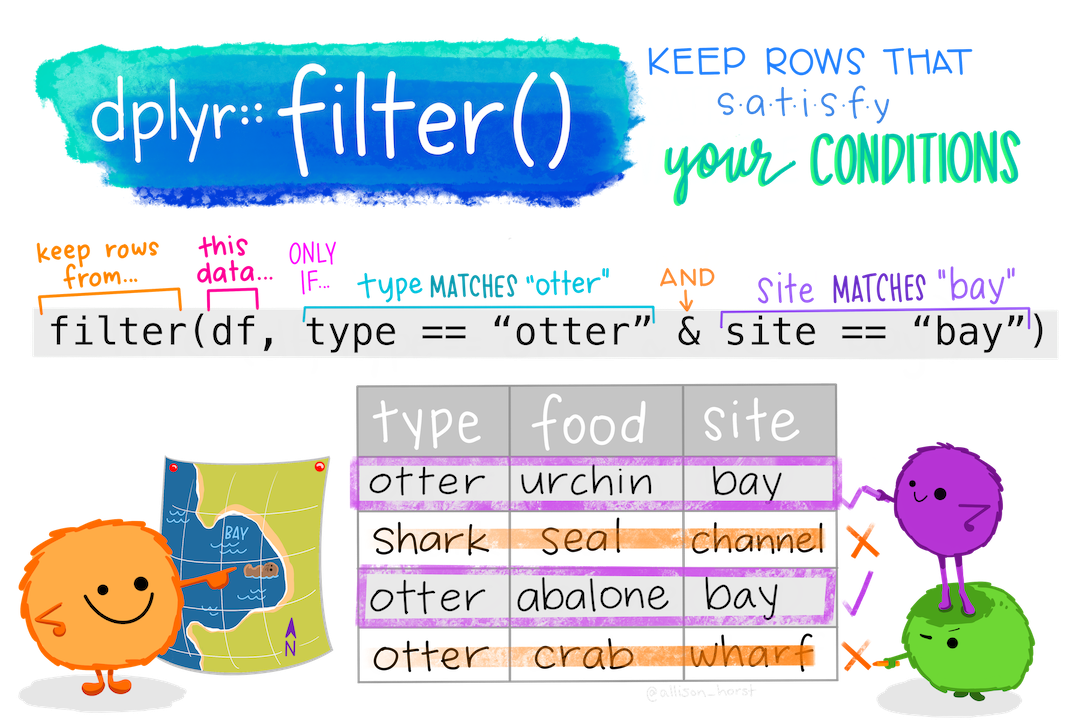 dplyr::filter()
KEEP ROWS THAT
s.a.t.i.s.f.y
your CONDITIONS
keep rows
from...
this
data...
ONLY
IF...
type MATCHES "otter"
AND
site MATCHES "bay"
filter(df, type == “otter” & site == “bay”)
type food site
otter urchin bay
Shark seal channel
otter abalone bay
otter crab wharf
BAY
N
@allison_horst